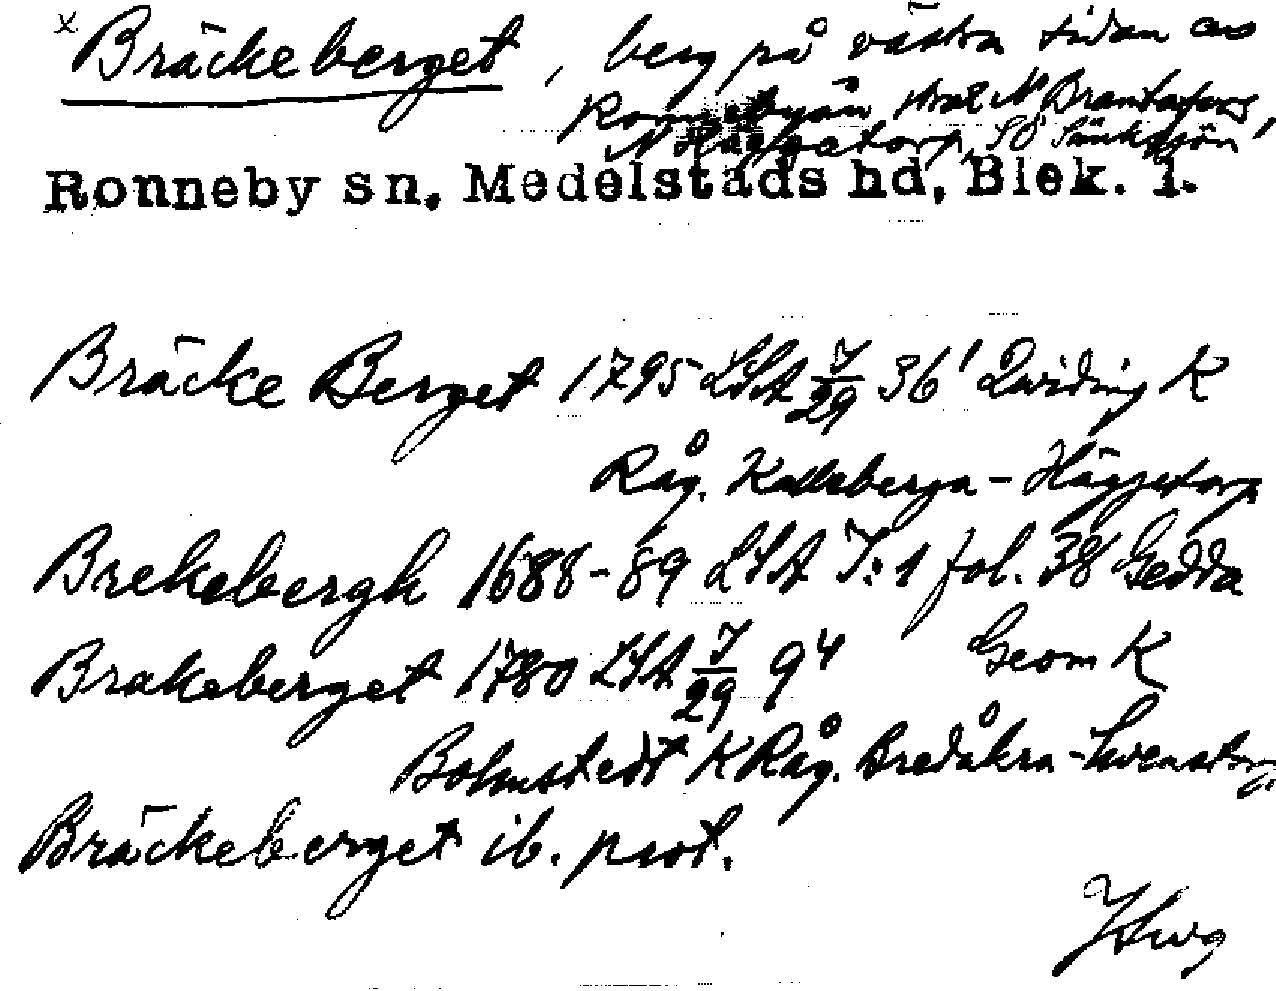 x Bräckeberget, berg på västra sidan av
Ronnebyån strax N Brantafors,
N Häggatorp, SO Sänksjön,
Ronneby sn. Medelstads hd, Blek. l.
Bräcke Berget 1795 LSA J/29 36¹ Qwiding K
Råg. Kalleberga - Häggetorp
Brekebergh 1688-89 LSA J:1 fol. 38 Gedda
Brakeberget 1780 LSA J/29 9⁴ Geom K
Bolmstedt K Råg. Bredåkra - Svenstorp
Bräckeberget ib. prot.